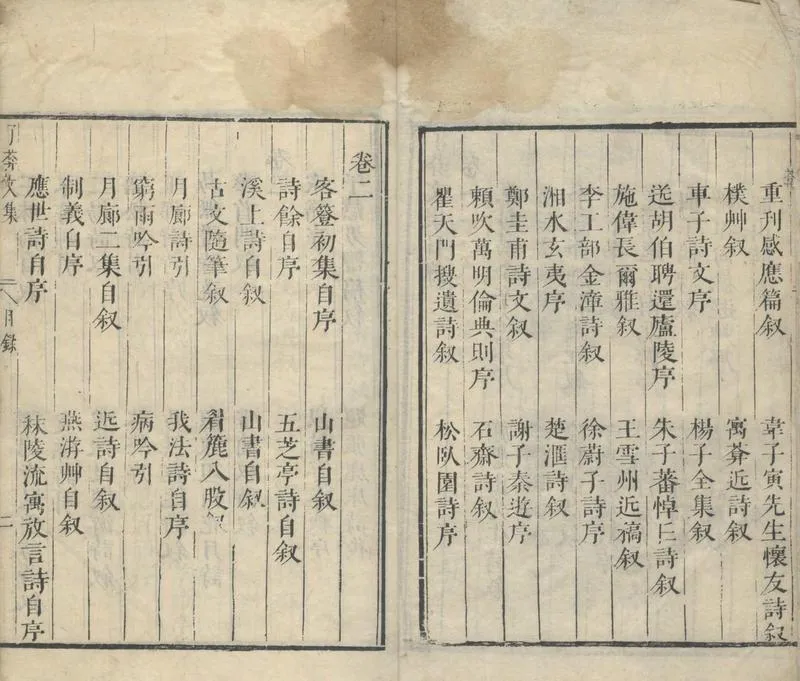 重刊感應篇叙 韋子寅先生懷友詩叙
樸艸叙 寓莽近詩叙
車子詩文序 楊子全集叙
送胡伯聘還廬陵序 朱子蕃悼亡詩叙
施偉長爾雅叙 王雪州近稿叙
李工部金漳詩叙 徐蔚子詩序
湘水玄夷序 楚滙詩叙
鄭圭甫詩文叙 謝子泰遊序
賴吹萬明倫典則序 石齋詩叙
瞿天門搜遺詩叙 松臥園詩序
卷二
客簦初集自序 山書自叙
詩餘自序 五芝亭詩自叙
溪上詩自叙 山書自叙
古文隨筆叙 看簏八股叙
月廊詩引 我法詩自序
窮雨吟引 病吟引
月廊二集自叙 近詩自叙
制義自序 燕游艸自叙
應世詩自序 秣陵流寓放言詩自序
文集 目錄 二